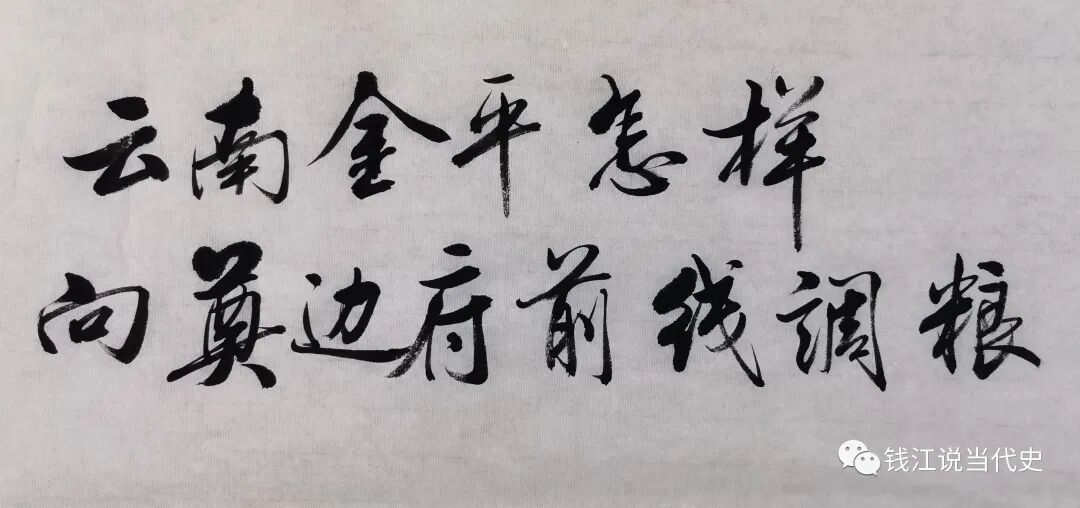 云南金平怎样
向奠边府前线調粮
钱江说当代史